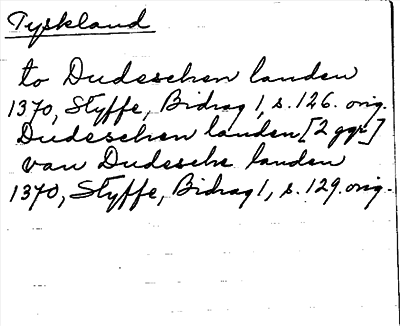 Tyskland
to Dudeschen landen
1370, Styffe, Bidrag 1, s. 126. orig.
Dudeschen landen [2 ggr.]
van Dudesche landen
1370, Styffe, Bidrag 1, s. 129. orig.